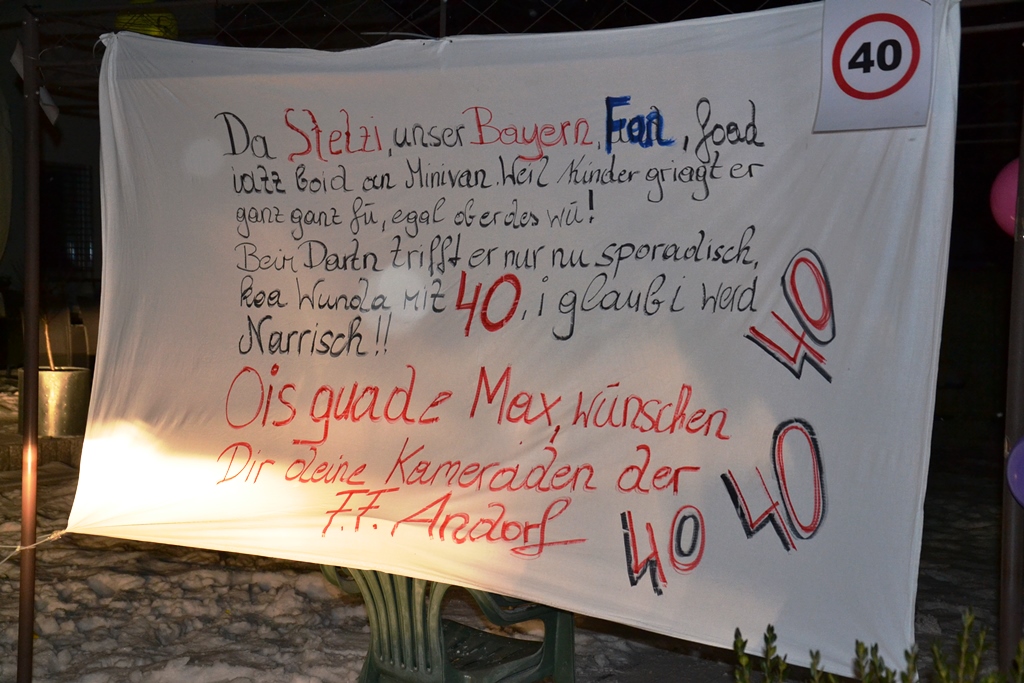 40
Da Stelzi, unser Bayern, Fan, foad
iatz boid an Minivan. Weil Kinder griagt er
ganz ganz fü, egal ober des wü!
Beim Dartn trifft er nur nu sporadisch,
koa Wunda mit 40, i glaub i werd
Narrisch!!
40
Ois guade Max, wünschen
Dir deine Kameraden der
F.F. Andorf
40
40